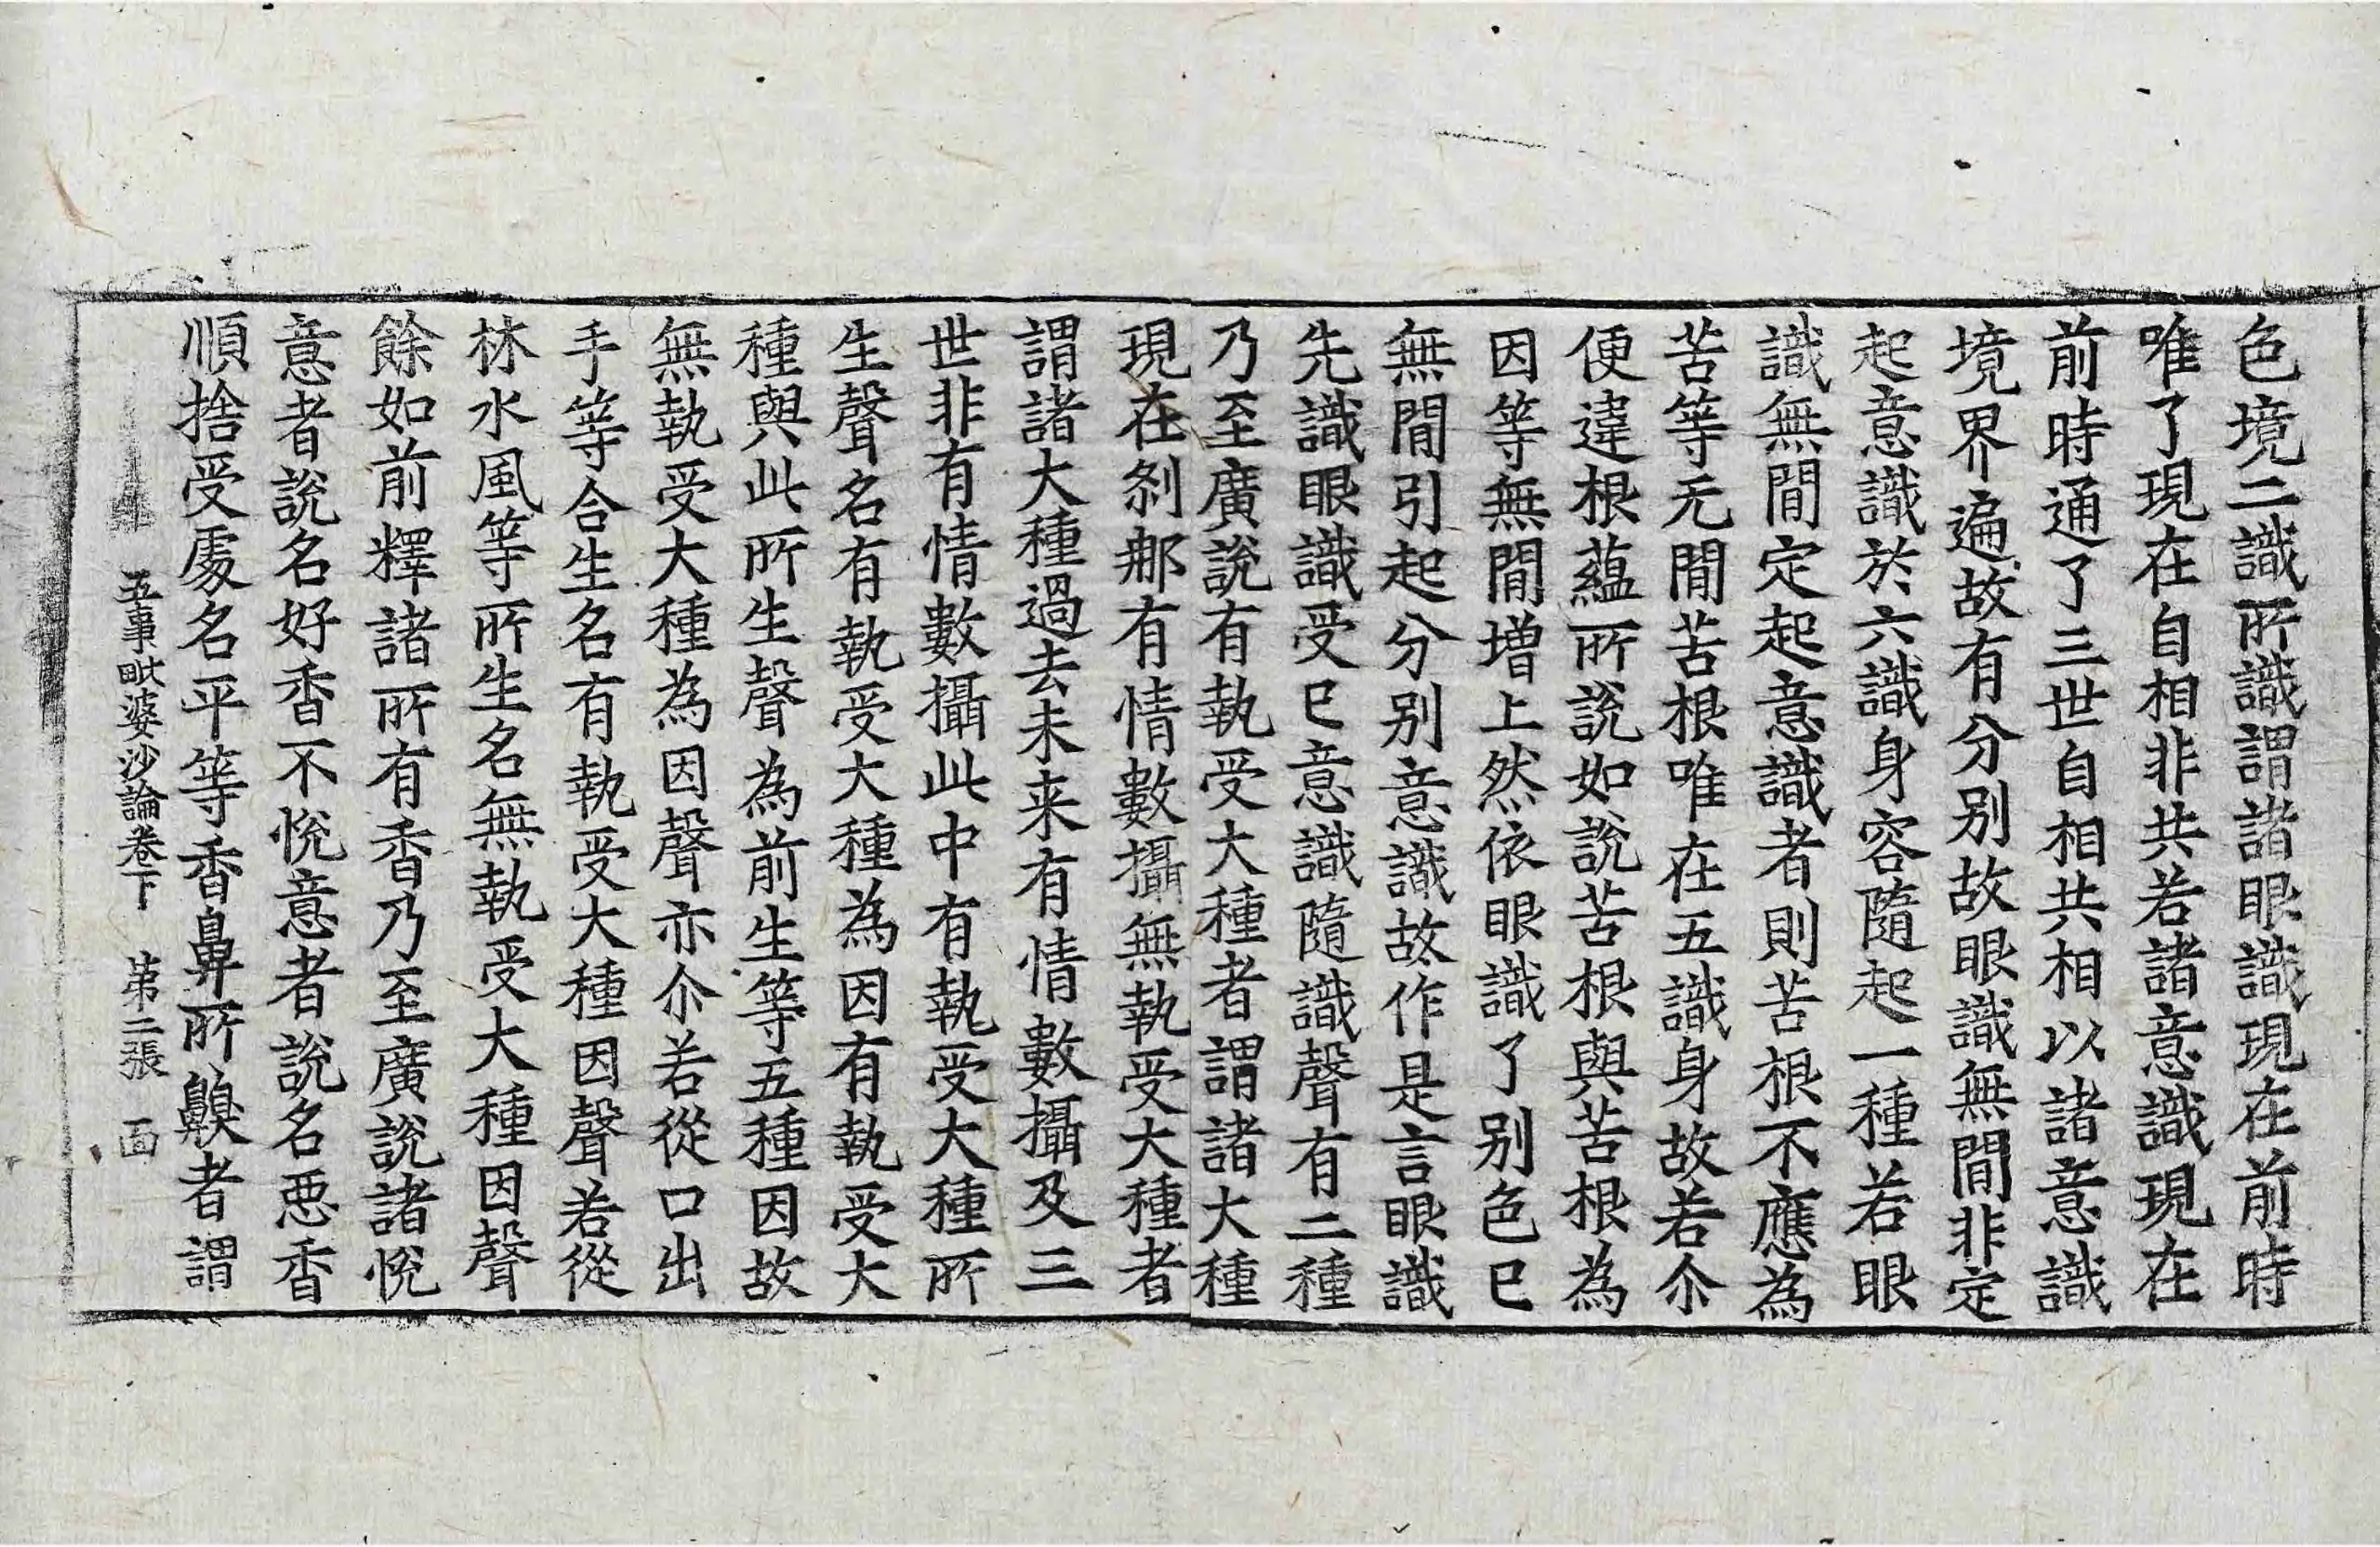 色境二識所識謂諸眼識現在前時
唯了現在自相非共若諸意識現在
前時通了三世自相共相以諸意識
境界遍故有分别故眼識無間非定
起意識於六識身容隨起一種若眼
識無間定起意識者則苦根不應為
苦等无間苦根唯在五識身故若尒
便違根蘊所說如說苦根與苦根為
因等無間增上然依眼識了别色已
無間引起分别意識故作是言眼識
先識眼識受已意識隨識聲有二種
乃至廣說有執受大種者謂諸大種
現在剎那有情數攝無執受大種者
謂諸大種過去未来有情數攝及三
世非有情數攝此中有執受大種所
生聲名有執受大種為因有執受大
種與此所生聲為前生等五種因故
無執受大種為因聲亦尒若從口出
手等合生名有執受大種因聲若從
林水風等所生名無執受大種因聲
餘如前釋諸所有香乃至廣說諸悅
意者說名好香不悅意者說名惡香
順捨受處名平等香鼻所齅者謂
五事毗婆沙論卷下 第二張 面